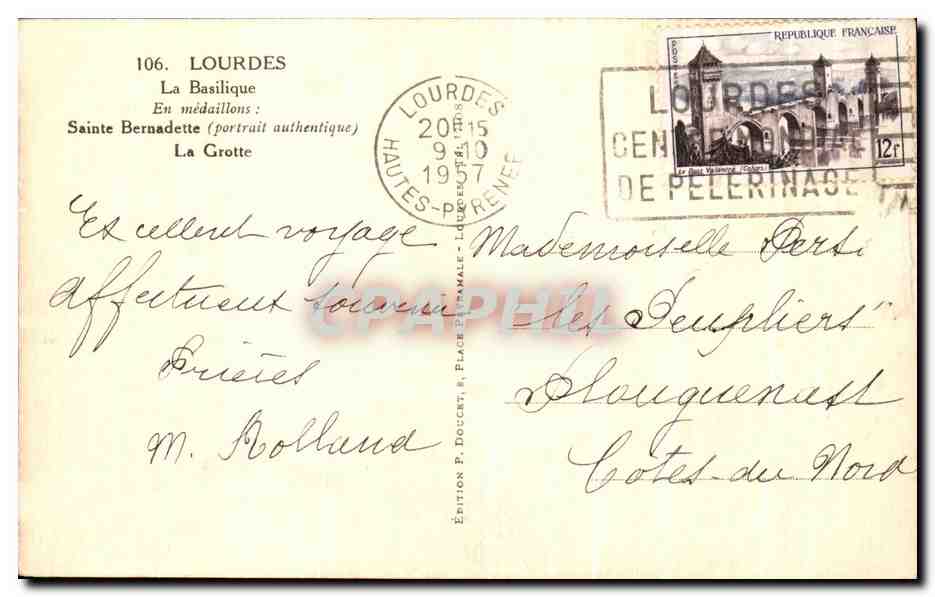 106. LOURDES
La Basilique
En médaillons :
Sainte Bernadette (portrait authentique)
La Grotte
LOURDES
20H15
9-10
1957
HAUTES-PYRENEES
RÉPUBLIQUE FRANÇAISE
POSTES
12f
Le Pont Valentré (Cahors)
LOURDES
DE PELERINAGE
Excellent voyage
affectueux souvenir
Prières
M. Rolland
ÉDITION P. DOUCET, 8, PLACE PEYRAMALE - LOURDES
Mademoiselle
"les Peupliers"
Plouguenast
Côtes-du Nord
CPAPHIL